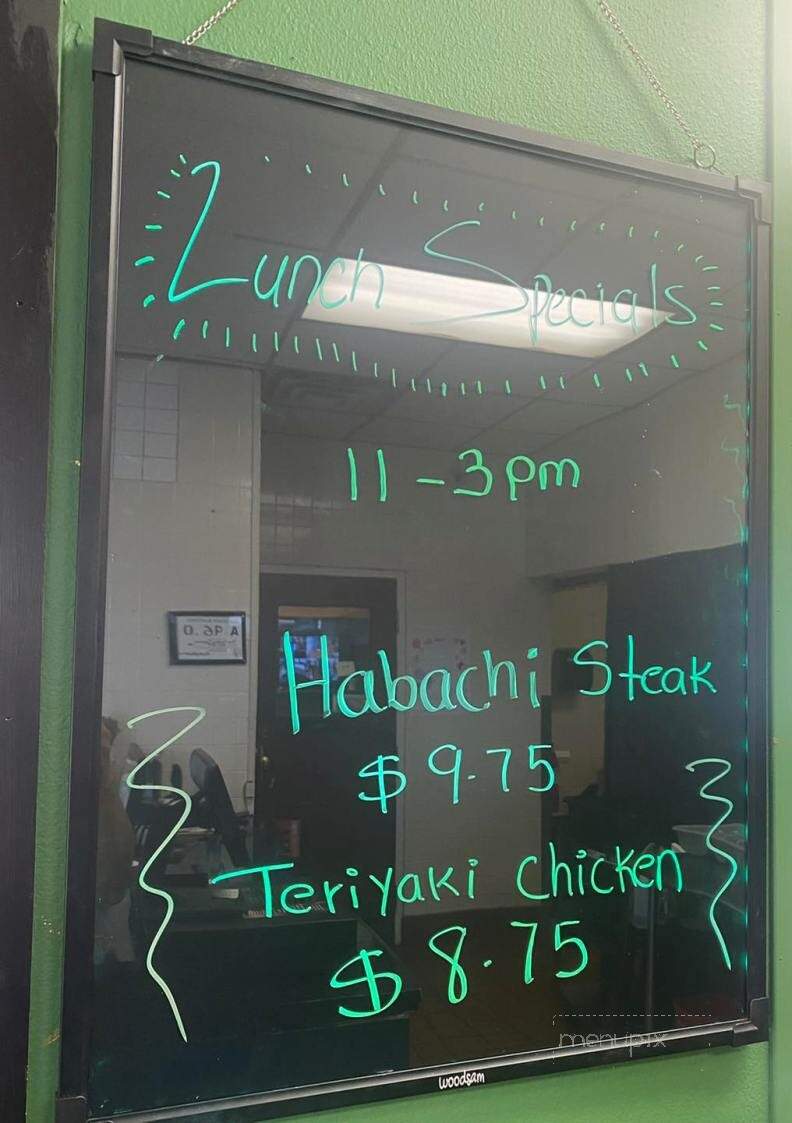 Lunch Specials
11-3pm
Habachi Steak
$9.75
Teriyaki Chicken
$8.75
menupix
woodsam